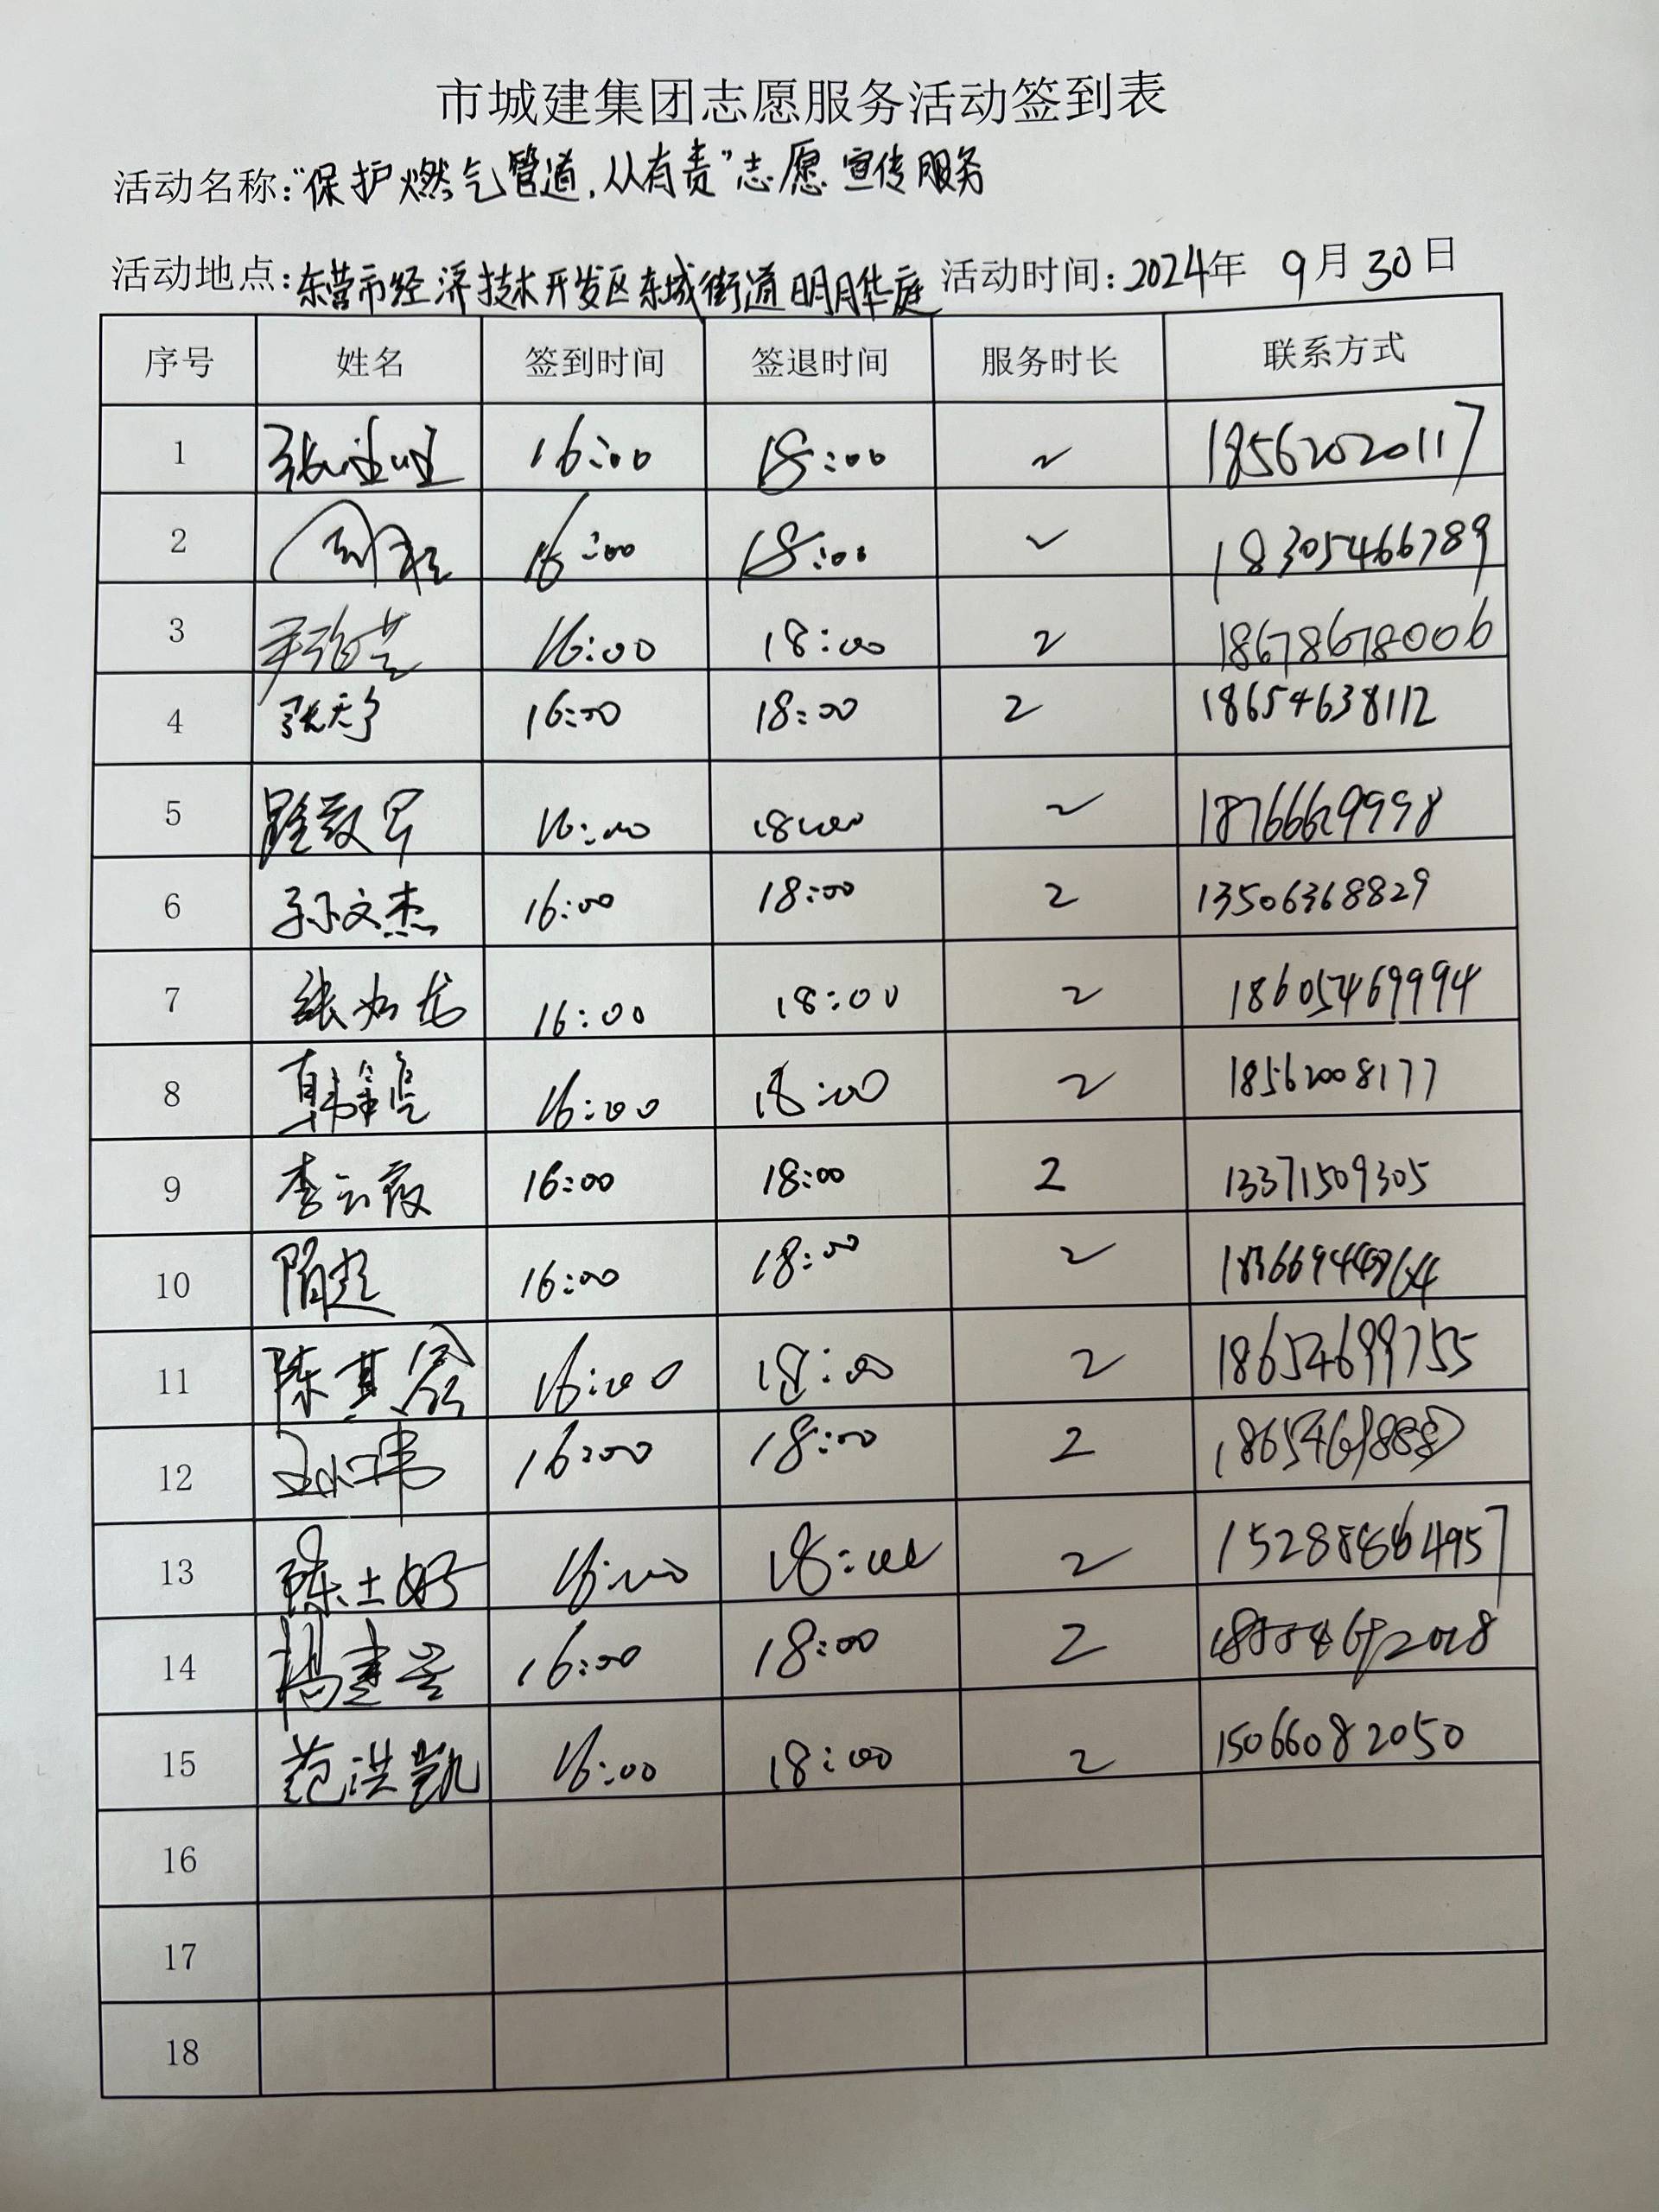 市城建集团志愿服务活动签到表
活动名称:“保护燃气管道,从有责”志愿宣传服务
活动地点:东营市经济技术开发区东城街道明月华庭 活动时间:2024年 9月30日
序号 姓名 签到时间 签退时间 服务时长 联系方式
1 16:00 18:00 2 18562020117
2 16:00 18:00 2 18305466789
3 16:00 18:00 2 18678678006
4 张天宁 16:00 18:00 2 18654638112
5 16:00 18:00 2 18766629998
6 孙文杰 16:00 18:00 2 13506368829
7 张如龙 16:00 18:00 2 18605469994
8 16:00 18:00 2 18562008177
9 李云霞 16:00 18:00 2 13371509305
10 隋超 16:00 18:00 2
11 陈其谷 16:00 18:00 2 18654699755
12 16:00 18:00 2
13 陈士好 16:00 18:00 2 15288864957
14 16:00 18:00 2
15 范洪凯 16:00 18:00 2 15066082050
16
17
18